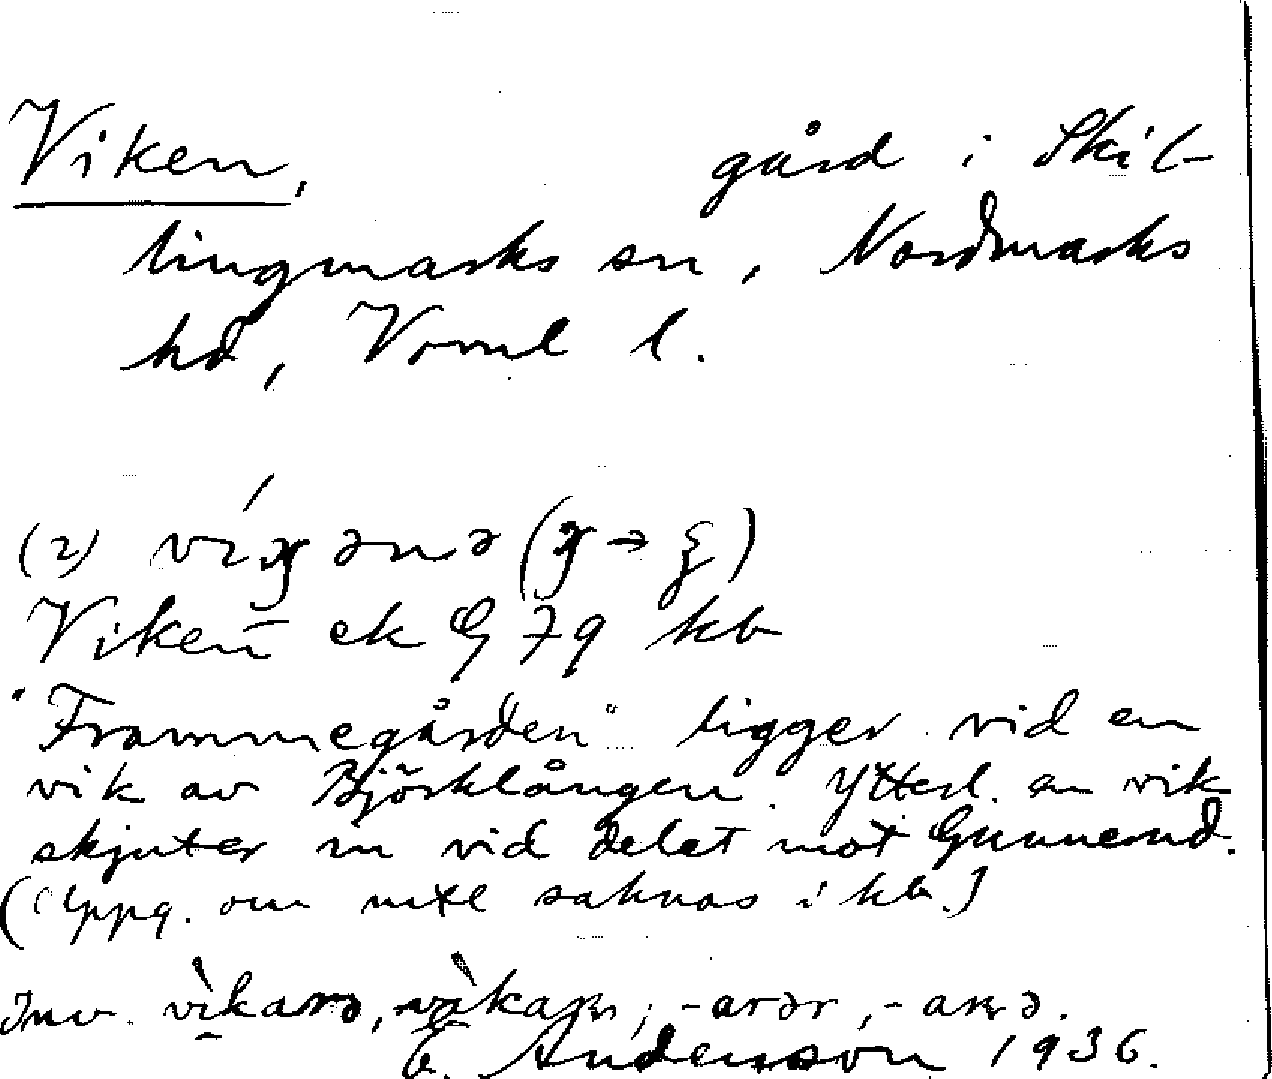 Viken, gård i Skil-
lingmarks sn, Nordmarks
hd, Värml l.
(2)
Viken ek G 79 kb
"Frammegården" ligger vid en
vik av Björklången. Ytterl. en vik
skjuter in vid delet mot Gunnerud.
(Uppg. om mtl saknas i kb.)
Inv. -arər,
E. Andersson 1936.